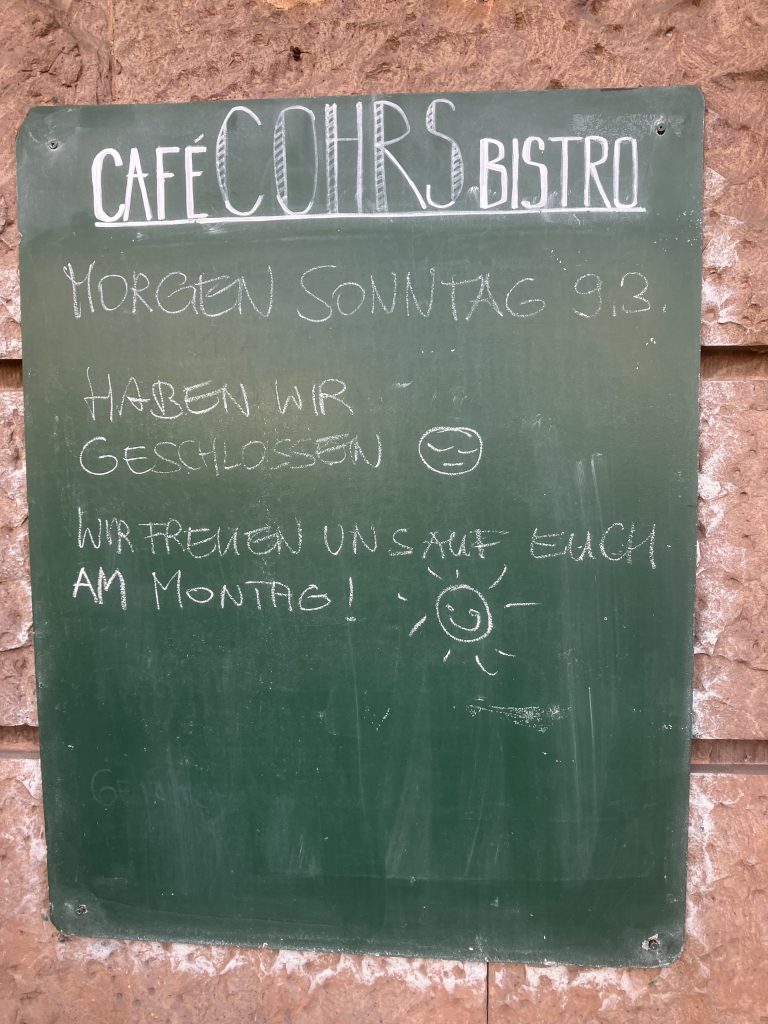 CAFÉ COHRS BISTRO
MORGEN SONNTAG 9.3.
HABEN WIR
GESCHLOSSEN
WIR FREUEN UNS AUF EUCH
AM MONTAG!